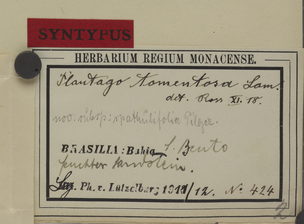 SYNTYPUS
HERBARIUM REGIUM MONACENSE.
Plantago tomentosa Lam.
det. Ross XI. 18.
nov. subsp. spathulifolia Pilger.
BRASILIA: Bahia, S. Bento
feuchter Sandstein.
Leg. Ph. v. Lützelburg 1911/12. No 424
2